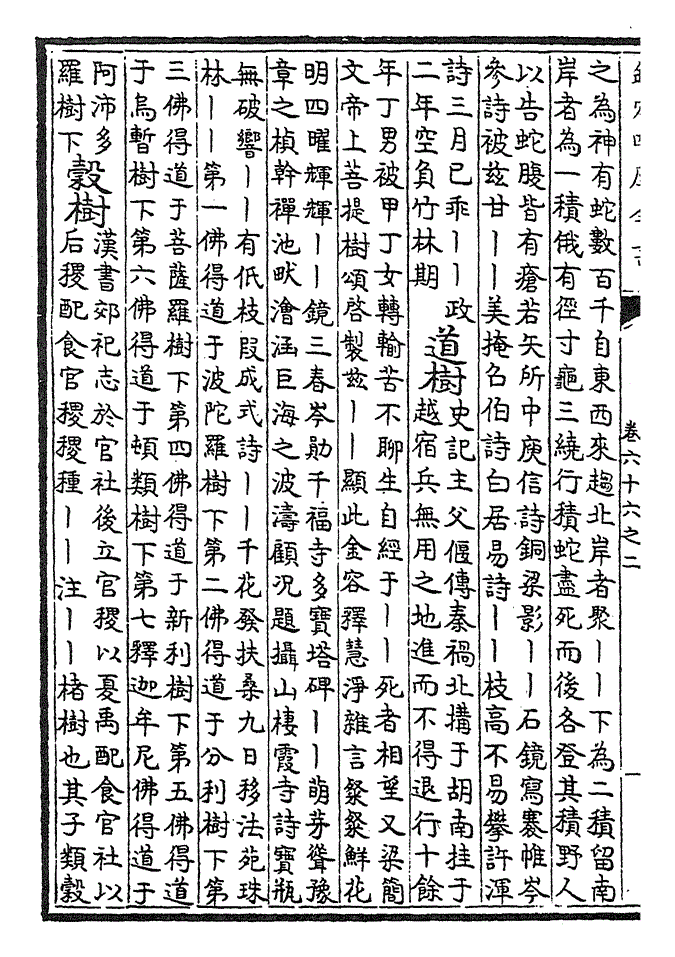 卷六十六之二
一
之為神有蛇數百千自東西來趨北岸者聚丨丨下為二積留南
岸者為一積俄有徑寸龜三繞行積蛇盡死而後各登其積野人
以告蛇腹皆有瘡若矢所中庾信詩銅梁影丨丨石鏡寫褰帷岑
參詩被兹甘丨丨美掩召伯詩白居易詩丨丨枝高不易攀許渾
詩三月已乖丨丨政
二年空負竹林期
道樹
史記主父偃傳秦禍北搆于胡南挂于
越宿兵無用之地進而不得退行十餘
年丁男被甲丁女轉輸苦不聊生自經于丨丨死者相望又梁簡
文帝上菩提樹頌啓製兹丨丨顯此金容釋慧淨雜言粲粲鮮花
明四曜輝輝丨丨鏡三春岑勛千福寺多寶塔碑丨丨萌芽聳豫
章之楨幹禪池畎澮涵巨海之波濤顧况題攝山棲霞寺詩寶瓶
無破響丨丨有低枝段成式詩丨丨千花發扶桑九日移法苑珠
林丨丨第一佛得道于波陀羅樹下第二佛得道于分利樹下第
三佛得道于菩薩羅樹下第四佛得道于新利樹下第五佛得道
于烏暫樹下第六佛得道于頓類樹下第七釋迦牟尼佛得道于
阿沛多
羅樹下
穀樹
漢書郊祀志於官社後立官稷以夏禹配食官社以
后稷配食官稷稷種丨丨注丨丨楮樹也其子類穀